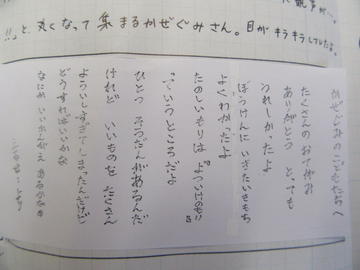 !!」と、丸くなって集まるかぜぐみさん。目がキラキラしてたよ。
かぜぐみのこどもたちへ
たくさんのおてがみ
ありがとう とっても
うれしーかったよ
ぼうけんにいきたいきもち
よくわかったよ
たのしいもりは
っていうところだよ
ひとつ そうだんがあるんだ
けれど いいものを たくさん
よういしすぎてしまったんだけど
どうすればいいかな
なにかいいかんがえ あるかなぁ